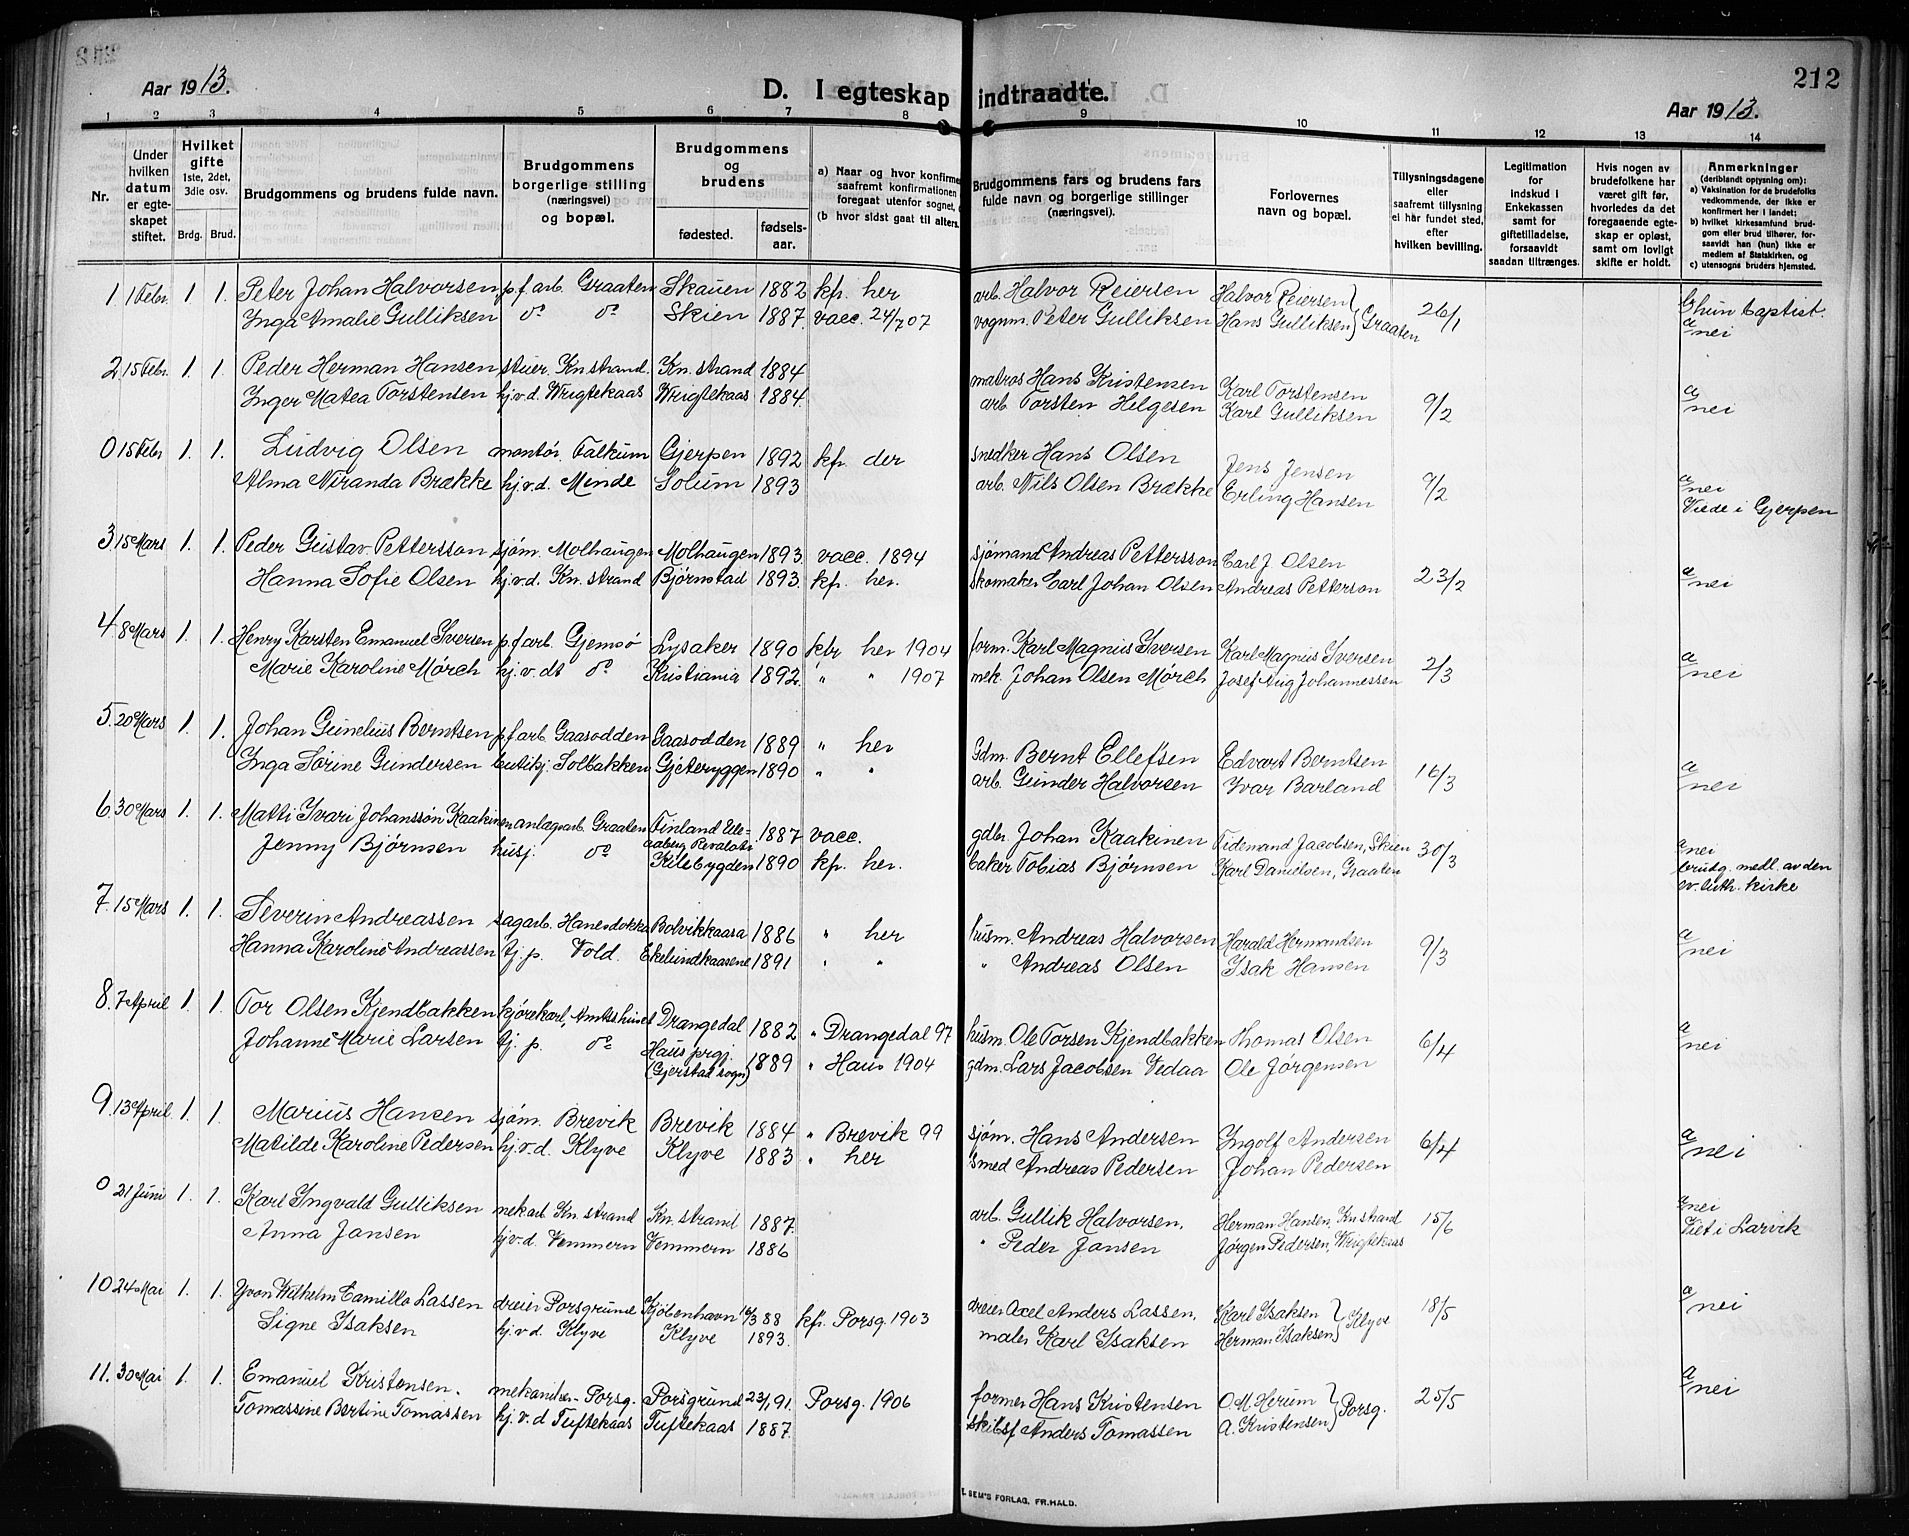 Aar 1913.
D. I egteskap indtraadte.
212
Aar 1913.
1 2 3 4 5 6 7 8 9 10 11 12 13 14
Nr.
Under hvilken datum er egteskapet stiftet.
Hvilket gifte 1ste, 2det, 3die osv.
Brdg. Brud.
Brudgommens og brudens fulde navn.
Brudgommens borgerlige stilling (næringsvei) og bopæl.
Brudgommens og brudens
fødested. fødsels-aar.
a) Naar og hvor konfirme
saafremt konfirmationen
foregaat utenfor sognet,
(b hvor sidst gaat til alters.
Brudgommens fars og brudens fars fulde navn og borgerlige stillinger (næringsvei).
Forlovernes navn og bopæl.
Tillysningsdagene eller saafremt tillysning ei har fundet sted, efter hvilken bevilling.
Legitimation for indskud i Enkekassen samt for giftetilladelse, forsaavidt saadan tiltrænges.
Hvis nogen av brudefolkene har været gift før, hvorledes da det foregaaende egteskap er opløst, samt om lovligt skifte er holdt.
Anmerkninger
(deriblandt oplysning om):
a) Vaksination for de brudefolks vedkommende, der ikke er konfirmert her i landet;
b) hvilket kirkesamfund brudgom eller brud tilhører, forsaavidt han (hun) ikke er medlem av Statskirken, og
c) utensogns bruders hjemsted.
1 1 Febr. 1 1. Peter Johan Halvorsen p.f.arb. Graaten Skauen 1882 kfr. her arb. Halvor Reiersen Halvor Reiersen } Graaten 26/1 b hun baptist.
Inga Amalie Gulliksen do do Skien 1887. vacc. 24/7 07 vognm. Peter Gulliksen Hans Gulliksen a nei
2. 15 Febr. 1. 1. Peder Herman Hansen stuer. Kn.strand. Kn. strand 1884 matros Hans Kristensen Karl Torstensen 9/2
Inger Matea Torstensen hj.v.d. Wrigtekaas Wrigtekaas 1884. arb. Torsten Helgesen Karl Gulliksen a nei
0 15 Febr 1. 1. Ludvig Olsen montør. Falkum Gjerpen 1892 kfr. der snedker Hans Olsen Jens Jensen 9/2 a nei
Alma Miranda Brække hj.v.d. Minde Solum 1893 arb. Nils Olsen Brække Erling Hansen Viede i Gjerpen
3. 15 Mars 1. 1. Peder Gustav Pettersson sjøm. Molhaugen Molhaugen 1893. vacc. 1894 sjømand Andreas Pettersson Carl J Olsen 23/2
Hanna Sofie Olsen hj.v.d. Kn. strand Bjørnstad 1893. kfr. her. skomaker Carl Johan Olsen Andreas Petterson a nei
4. 8 Mars 1. 1. Henry Karsten Emanuel Iversen p.f.arb. Gjemsø Lysaker 1890 kfr her 1904 form. Karl Magnus Iversen Karl Magnus Iversen 2/3
Marie Karoline Mørch hj.v.ds do Kristiania 1892. " " 1907 mek. Johan Olsen Mørch Josef Aug Johannessen a nei
5. 20 Mars 1. 1. Johan Gunelius Berntsen p.f.arb. Gaasodden Gaasodden 1889 " her Gdm. Bernt Ellefsen Edvart Berntsen 16/3
Inga Sørine Gundersen butikj. Solbakken Gjeteryggen 1890 " " arb. Gunder Halvorsen Ivar Barland a nei
6. 30 Mars 1. 1. Matti Ivari Johanssøn Kaakinen anlægsarb. Graaten Finland Ule- 1887 vacc. gdbr Johan Kaakinen Tidemand Jacobsen, Skien 30/3 a nei
Jenny Bjørnsen husj. do Kilebygden 1890 kfr. her. baker Tobias Bjørnsen Karl Danielsen, Graaten brudg. medl. av den
ev. luth. kirke
7. 15 Mars 1. 1. Severin Andreassen sagarb. Hanesdokka Bolvikkaasa 1886 " her husm. Andreas Halvorsen Harald Hermandsen 9/3
Hanna Karoline Andreassen tj. p. Vold. Ekelundkaasene 1891 " " " Andreas Olsen Isak Hansen a nei
8. 7 April 1. 1. Tor Olsen Kjendbakken kjørekarl, Amtshuset Drangedal 1882 " Drangedal 97 husm. Ole Torsen Kjendbakken Thomas Olsen 6/4
Johanne Marie Larsen tj. p. do Haus prgj. (Gjerstad sogn) 1889 " Haus 1904 gdm. Lars Jacobsen Vedaa Ole Jørgensen a nei
9. 13 April 1. 1. Marius Hansen sjøm. Brevik Brevik 1884 " Brevik 99 sjøm. Hans Andersen Ingolf Andersen 6/4
Matilde Karoline Pedersen hj.v.d. Klyve Klyve 1883 " her smed Andreas Pedersen Johan Pedersen a nei
0 21 Juni 1. 1. Karl Ingvald Gulliksen mekarb Kn. strand Kn. strand 1887. arb. Gullik Halvorsen. Herman Hansen, Knstrand 15/6 a nei
Anna Jansen hj.v.d. Vemmern Vemmern 1886 " Peder Jansen Jørgen Pedersen, Wrigtekaas Viet i Larvik
10 24 Mai 1. 1. Yvon Wilhelm Camillo Lassen dreier Porsgrund Kjøbenhavn 16/3 88 kfr. Porsg. 1903 dreier Axel Anders Lassen. Karl Isaksen } Klyve 18/5
Signe Isaksen hj.v.d. Klyve Klyve 1893. maler Karl Isaksen Herman Isaksen a nei
11. 30 Mai 1. 1. Emanuel Kristensen. Porsg. Porsgrund 23/1 91. Porsg. 1906 former Hans Kristensen O.M. Herum } Porsg. 25/5
Tomassine Bertine Tomassen hj.v.d Tuftekaas Tuftekaas 1887. skibsf Anders Tomassen A. Kristensen a nei
SEM'S FORLAG, FR.HALD.